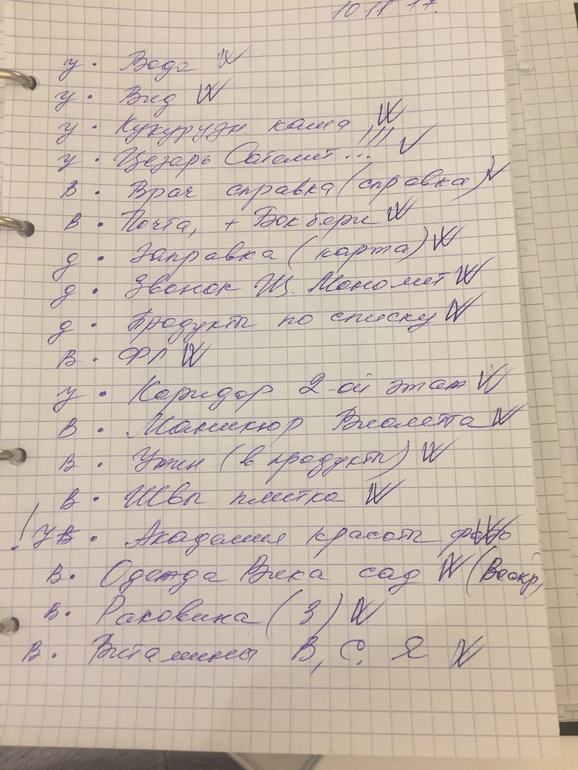 10.11.17.
у. Вода
у. Вид
у. Кукурузн. каша
у. Цезарь Сателит...!!!
В. Врач справка (справка)
В. Почта, + Боксбери
д. Заправка (карта)
д. Звонок Щ. Мономит
д. Продукты по списку
В. ФЛ
у. Коридор 2-ой этаж
В. Маникюр Виолетта
В. Ужин (в продукты)
В. Швы плитка
! УВ. Академия красоты фото
В. Одежда Вика сад (Воскр)
В. Раковина (3)
В. Витамины В, С, Я